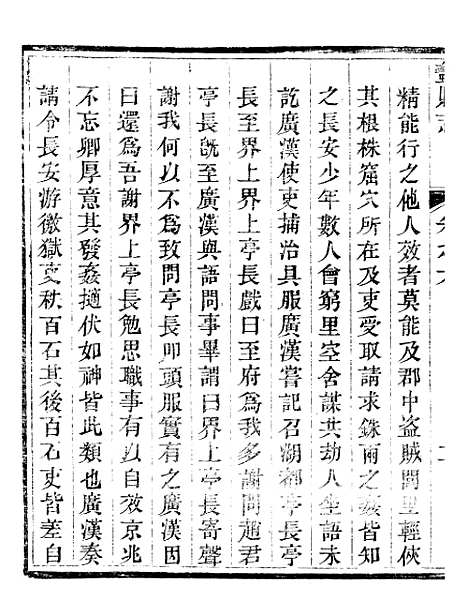 精能行之他人效者莫能及郡中盜賊閭里輕俠
其根株窟穴所在及吏受取請求銖兩之姦皆知
之長安少年數人會窮里空舍謀共劫人坐語未
訖廣漢使吏捕治具服廣漢嘗記召湖都亭長亭
長至界上界上亭長戲曰至府為我多謝問趙君
亭長旣至廣漢與語問事畢謂曰界上亭長寄聲
謝我何以不為致問亭長叩頭服實有之廣漢因
曰還為吾謝界上亭長勉思職事有以自效京兆
不忘卿厚意其發姦擿伏如神皆此類也廣漢奏
請令長安游徼獄吏秩百石其後百石吏皆差自